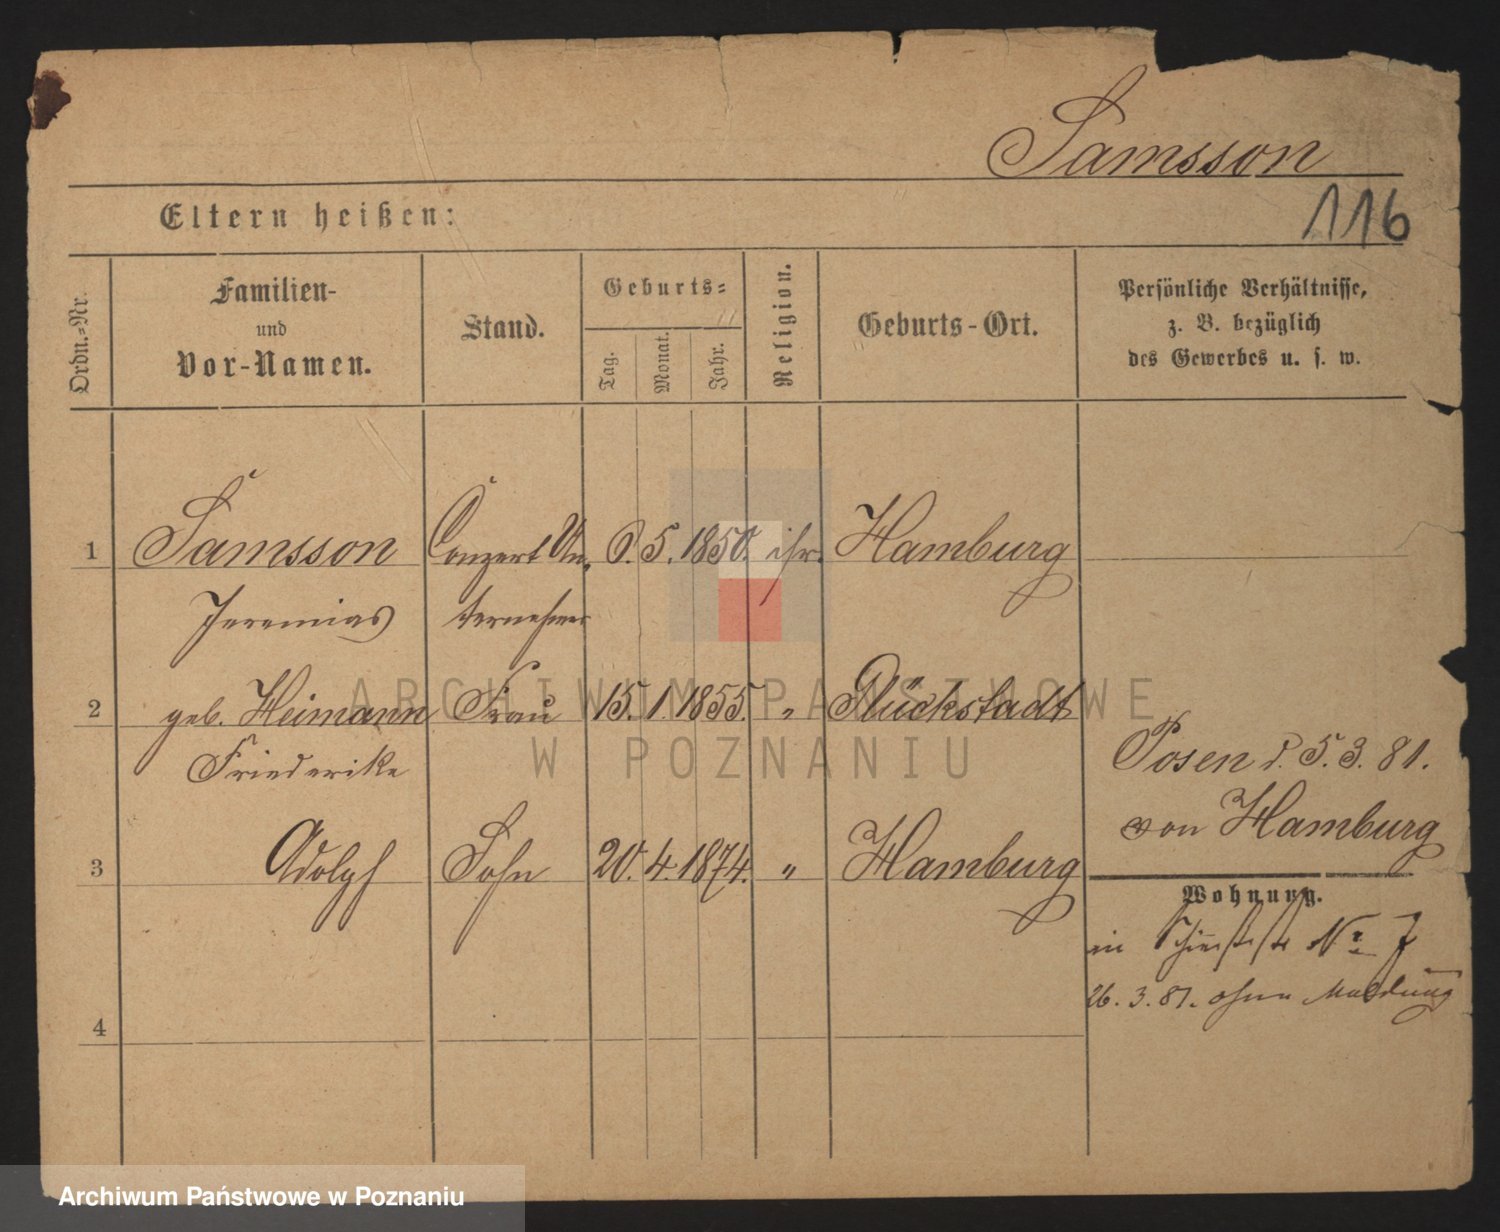 Samsson
116
Eltern heißen:
Ordn.-Nr.
Familien-
und
Vor-Namen.
Stand.
Geburts-
Tag.
Monat.
Jahr.
Religion.
Geburts-Ort.
Persönliche Verhältnisse,
z. B. bezüglich
des Gewerbes u. s. w.
1 Samsson Conzert Un- 6. 5. 1850. isr. Hamburg
Jeremias ternehmer
2 geb. Heimann Frau 15. 1. 1855. " Glückstadt
Friederike
Posen d. 5. 3. 81.
von Hamburg
3 Adolph Sohn 20. 4. 1874. " Hamburg
Wohnung.
in No 7
26. 3. 81. ohne Meldung
4
ARCHIWUM PAŃSTWOWE
W POZNANIU
Archiwum Państwowe w Poznaniu